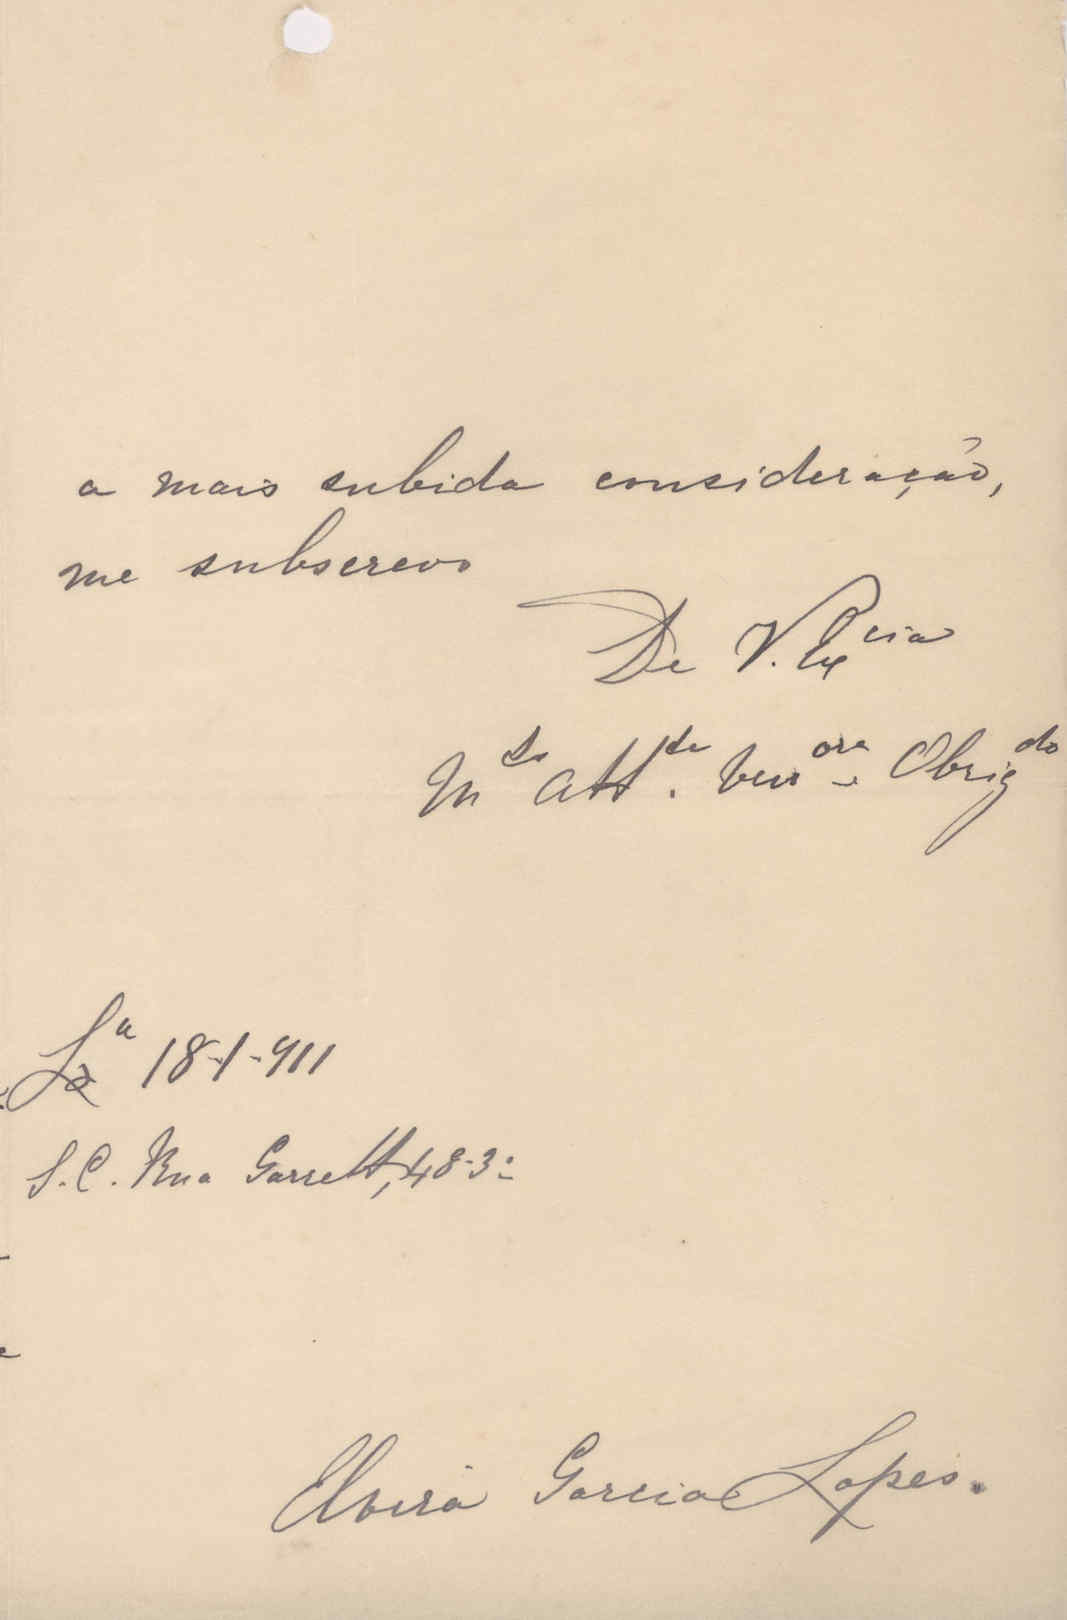 a mais subida consideração,
me subscrevo
De V. Excia
Mto Attte. Venora Obrigdo
Lxa 18-1-911
S. C. Rua Garrett, 48-3º
Elvira Garcia Lopes.